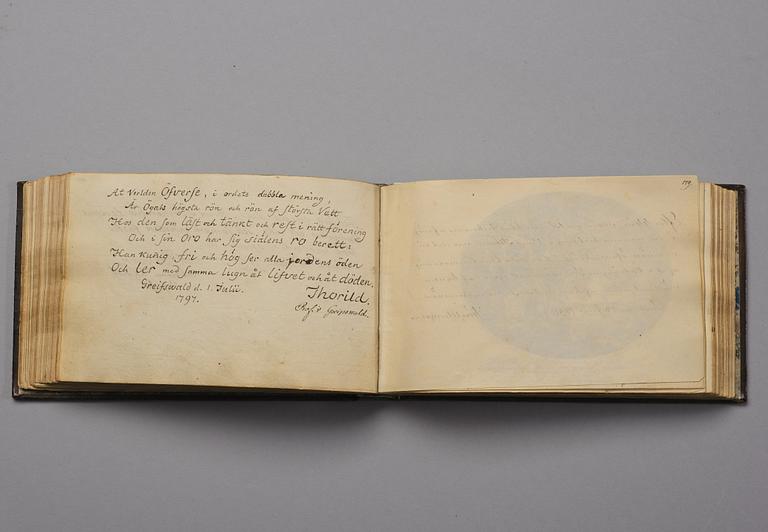 At Verlden Öfverse, i ordets dubbla mening,
Är Ögats högsta rön och rön af största Vett
Hos den som läst och tänkt och rest i rätt förening
Och i sin oro har sig Siälens ro berett:
Han kunig, fri och hög ser alla jordens öden
Och ler med samma lugn åt lifvet och åt döden.
Greifswald d. 1. Julii.
1797.
Thorild.
Prof. i Greipswald.
179.